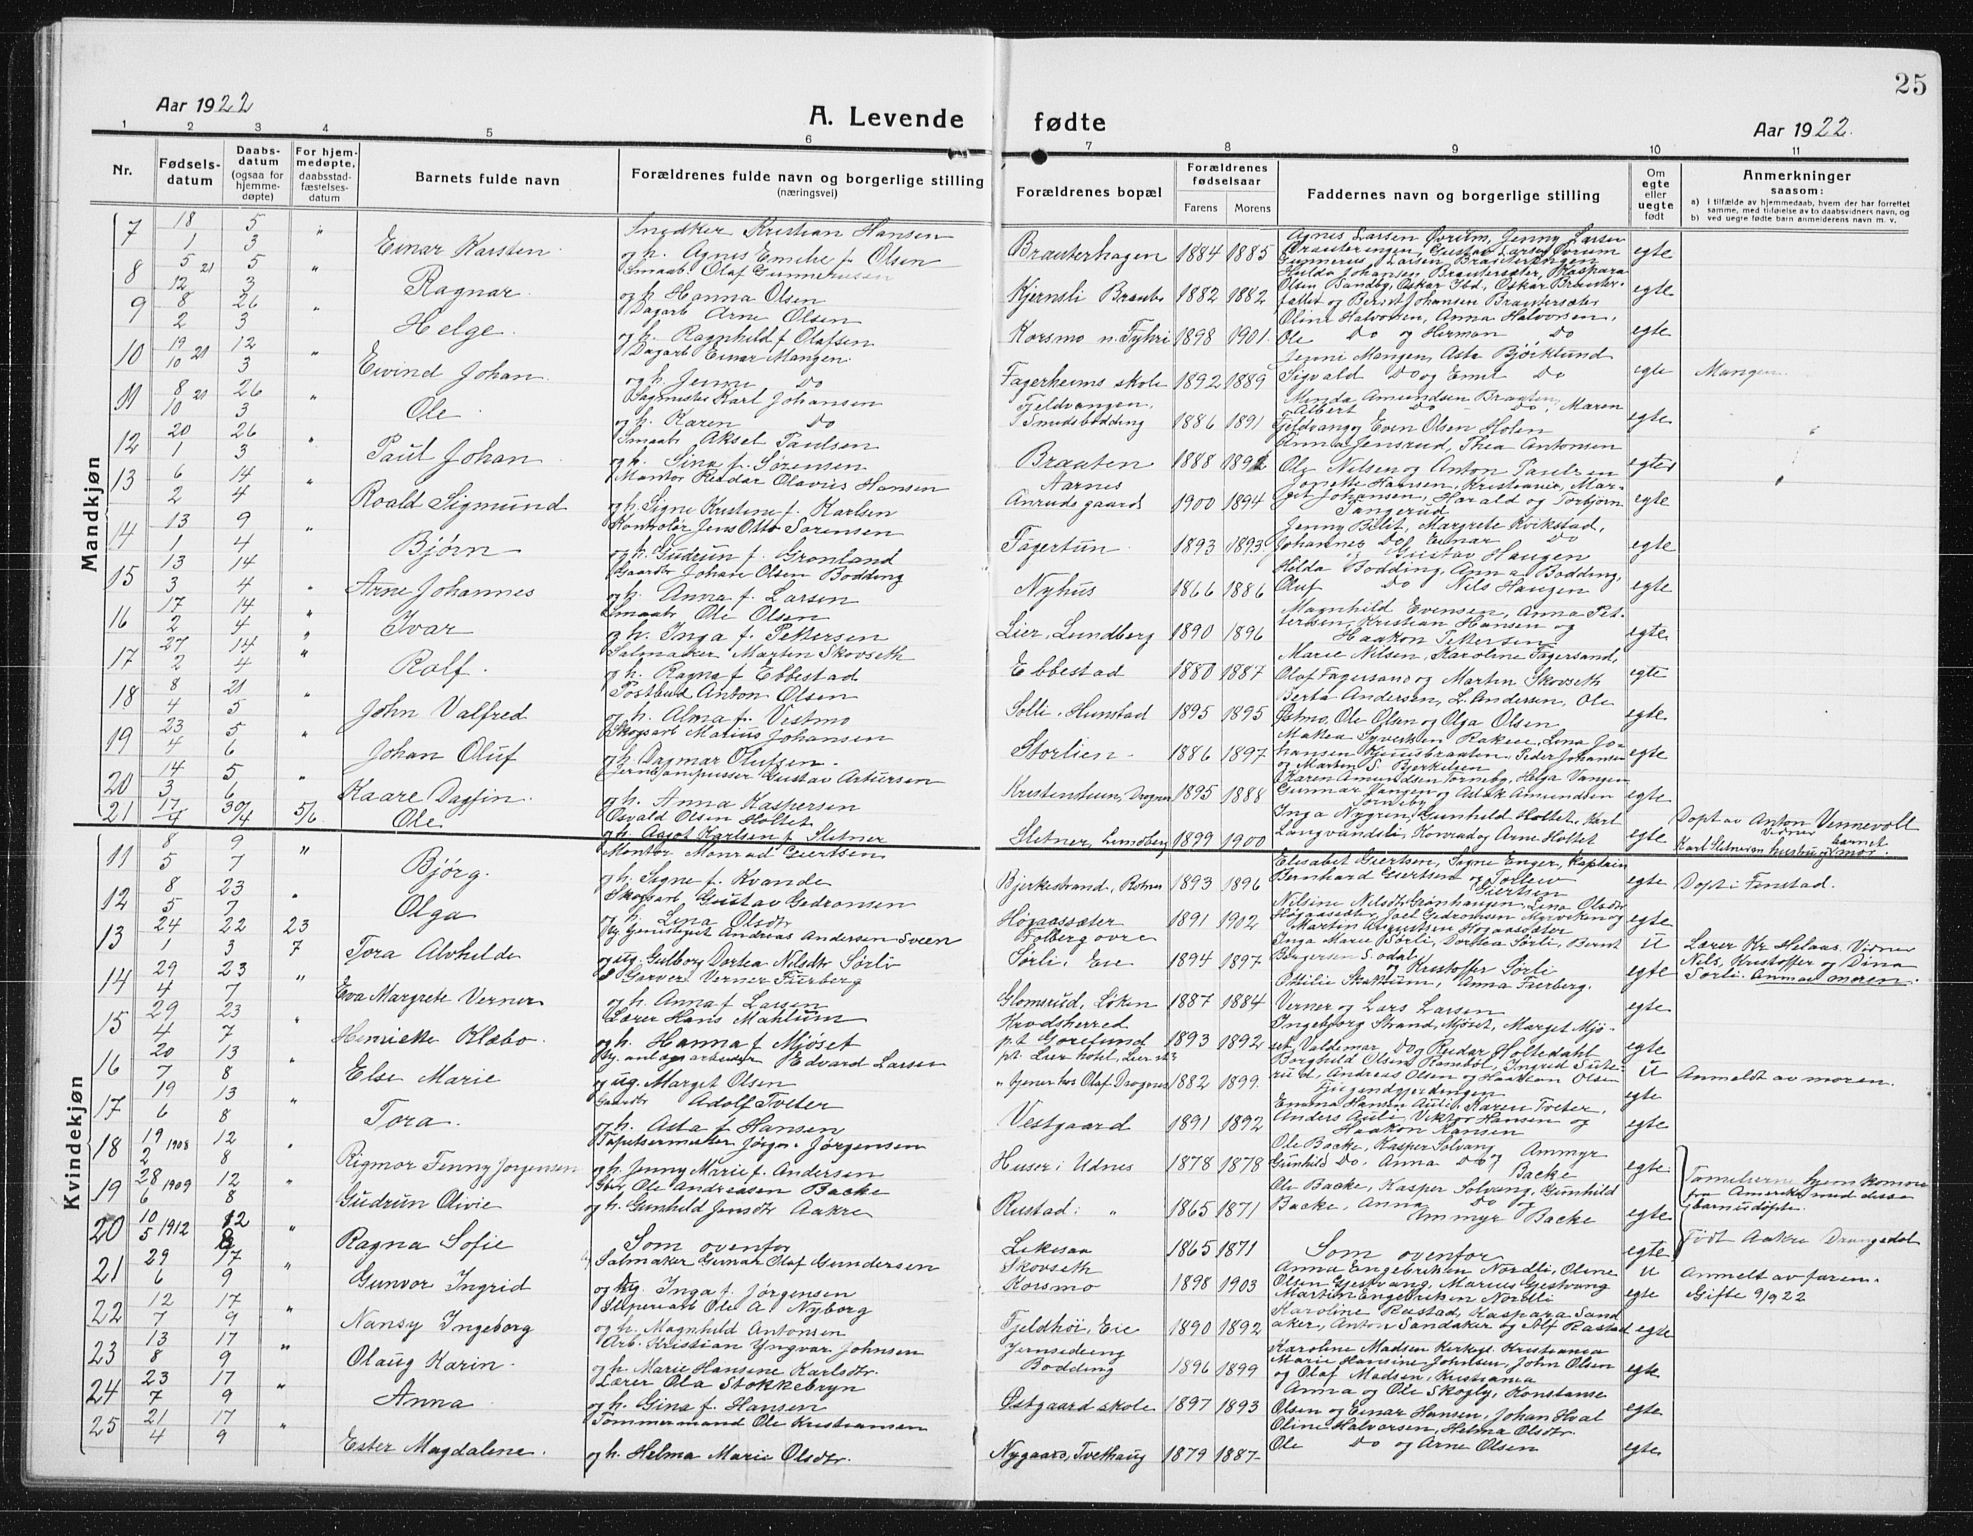 25
Aar 1922
A. Levende fødte
Aar 1922.
1 2 3 4 5 6 7 8 9 10 11
Nr.
Fødsels-
datum
Daabs-
datum
(ogsaa for
hjemme-
døpte)
For hjem-
medøpte,
daabsstad-
fæstelses-
datum
Barnets fulde navn
Forældrenes fulde navn og borgerlige stilling
(næringsvei)
Forældrenes bopæl
Forældrenes
fødselsaar
Farens Morens
Faddernes navn og borgerlige stilling
Om
egte
eller
uegte
født
Anmerkninger
saasom:
a) I tilfælde av hjemmedaab, hvem der har forrettet
samme, med tilføielse av to daabsvidners navn, og
b) ved uegte født barn anmelderens navn m. v.
Mandkjøn
7 18/1 5/3 " Einar Karsten
Kristian Hansen
og h. Agnes Emelie f. Olsen
Brauterhagen 1884 1885
Agnes Larsen Ørum, Jenny Larsen
egte
8 5/12 21 5/3 " Ragnar
Smaab. Olaf Gunneriussen
og h. Hanna Olsen
Kjernsli Braaten 1882 1882
egte
9 8/2 26/3 " Helge.
Dagarb. Arne Olsen
og h. Ragnhild f. Olafsen
Korsmo n. Fyhri 1898 1901.
Oline Halvorsen, Anna Halvorsen,
Ole Do og Herman Do
egte
10 19/10 21 12/3 " Eivind Johan.
Dagarb. Einar Mangen.
og h. Jenny Do
Fagerheims skole 1892 1889
Jenni Mangen, Asta Bjørklund
Sigvald Do og Emil Do
egte Mangen.
11 8/10 21 26/3 " Ole.
Sagmester Karl Johansen
og h. Karen Do
Fjeldvangen,
Smedsbødding 1886 1891
Minda Amundsen Braaten,
Albert Do Do, Maren
Fjeldvang og Even Olsen Holen
egte
12 20/1 26/3 " Paul Johan
Smaab. Aksel Paulsen
og h. Sina f. Sørensen
Braaten 1888 1892
Anna Jensrud, Thea Antonsen
Ole Nilsen og Anton Paulsen
egte
13 6/2 14/4 " Roald Sigmund
Montør Reidar Olavius Hansen
og h. Signe Kristine f. Karlsen
Aarnes
Anrudsgaard 1900 1894
Jonette Hansen, Kristiania, Mar-
git Johansen, Harald og Torbjørn
Tangerud
egte
14 13/1 9/4 " Bjørn
Kontorlør Jens Otto Sørensen
og h. Gudrun f. Grønland
Fagertun. 1893 1893.
Jenny Bilit, Margrete Kvikstad,
Johannes Do Einar Do
og Gustav Haugen
egte
15 13/3 14/4 " Arne Johannes
Gaardbr. Johan Olsen Bodding
og h. Anna f. Larsen
Nyhus 1866 1886
Hilda Bodding, Anna Bodding,
Oluf Do Nils Haugen
egte
16 17/2 14/4 " Ivar
Smaab. Ole Olsen
og h. Inga f. Pettersen
Lier, Lundberg 1890 1896
Magnhild Evensen, Anna Pet-
tersen, Kristian Hansen og
Haakon Pettersen
egte
17 27/2 14/4 " Rolf.
Salmaker Martin Skovseth
og h. Ragna f. Ebbestad
Ebbestad 1880 1887
Marie Nilsen, Karoline Fagersand,
Olaf Fagersand og Martin Skovseth
egte
18 8/4 21/5 " John Valfred
Postbud Anton Olsen
og h. Alma f. Vestmo
Solli, Hunstad 1895 1895
Berta Andersen, L. Andersen, Ole
Ole Olsen og Olga Olsen
egte
19 23/4 5/6 " Johan Oluf
Skogsarb. Marius Johansen
og h. Dagmar Olufsen.
Storlien 1886 1897
og Martin S. Bjerkelsen
egte
20 14/3 5/6 " Kaare Dagfin.
Gustav Asbersen
og h. Anna Kaspersen
Kristensheim, Drognes 1895 1888
Karen Amundsen Torneby, Helga Vangen
Gunnar Vangen og Adak Amundsen
Torneby
egte
21 17/4 30/4 5/6. Ole
Osvald Olsen Holtet
og h. Aagot Karlsen f. Sletner
Sletner, Lundberg 1899 1900
Inga Nygren, Gunhild Holtet, Karl
Langvandsli, Konrad og Arne Holtet
egte
Døpt av Anton Vennevoll
Vidner barnet
Karl Sletner en hustru og mor.
Kvindekjøn
11 8/5 9/7 " Bjørg.
Montør Monrad Giertsen
og h. Signe f. Kvande
Bjerkestrand, Rotnes 1893 1896
Elisabet Giertsen, Signe Enger, Kaptein
Bernhard Giertsen og Torleiv
Giertsen
egte Døpt i Fenstad.
12 8/5 23/7 " Olga
Skogsarb. Gustav Gedeonsen
og h. Lina Olsdtr
Høgaassæter 1891 1902
Nilsine Nilsdtr Grønhaugen, Lina Olsdtr
Høgaasseter, Joel Gedeonsen Myrviken og
Martin Augustsen Høgaasæter
egte
13 24/1 22/3 23/7 Tora Alvhilde
Andreas Andersen Sveen
og ug. Gulborg Dortea Nilsdtr Sørli
Folberg øvre
Sørli, Eie 1894 1897
Inga Marie Sørli, Dortea Sørli, Bernt
Bergersen S. Odal
og Kristoffer Sørli
u
Lærer Kr. Helaas. Vidner
Nils, Kristoffer og Dina
Sørli. Anm. av moren.
14 29/4 23/7 " Eva Margrete Verner
Garver Verner Furberg
og h. Anna f. Larsen
Glomsrud, Løken 1887 1884
Ottilie Skotium, Anna Furberg,
Verner og Lars Larsen
egte
15 29/4 23/7 " Henrikke Klæbo.
Lærer Hans Mahlum
og h. Hanna f. Mjøset
Hrodsherred
p.t. Gorefund 1893 1892
Ingeborg Strand, Mjøset, Marget Mjø-
set, Valdemar Do og Reidar Holtedahl
egte
16 20/7 13/8 " Else Marie
By. anlægsarbeider Edvard Larsen
og ug. Marget Olsen
p.t. Lier hotel, Lier st.
" tjener hos Olaf Drognes 1882 1899.
Borghild Olsen Rambøl, Ingrid Sæte-
rud, Andreas Olsen og Haakon Olsen
u Anmeldt av moren.
17 19/6 13/8 " Tora.
Gaardbr Adolf Tveter
og h. Asta f. Hansen
Vestgaard 1891 1892
Emma Hansen Auli, Karen Tveter,
Anders Auli, Viktor Hansen og
Haakon Hansen
egte
18 19/2 1908 12/8 " Rigmor Fenny Jørgensen
Tapetsermester Jørgen Jørgensen
og h. Jenny Marie f. Andersen
Huser i Udnes 1878 1878
Ole Backe, Kasper Solvang, Ammyr
Gunhild Do, Anna Do og
Backe
egte
19 28/6 1909 12/8 " Gudrun Olivie
Gbr. Ole Andreasen Backe
og h. Gunhild Jensdtr Aakre
Rustad i " 1865 1871
Ole Backe, Kasper Solvang, Gunhild
Backe, Anna Do og
Ammyr Backe
egte
Familierne hjemkommen
fra Amerika med disse
barn udøpte.
20 10/5 1912 12/8 " Ragna Sofie
Som ovenfor
Likesaa 1865 1871
Som ovenfor
egte Født Aakre Drangedal
21 29/6 17/9 " Gunvor Ingrid
Salmaker Gunnar Olaf Gundersen
og ug. Inga f. Jørgensen
Skovseth
Korsmo 1898 1903
Anna Engebriksen Nordli, Oline
Olsen Gjestvang, Marius Gjestvang
Martin Engebriksen Nordli
u
egte
Anmelt av faren.
Gifte 9/9 22
22 12/7 17/9 " Nansy Ingeborg
Sliperiarb. Ole A. Nyborg
og h. Magnhild Antonsen
Fjeldhøi, Eie 1890 1892
Karoline Rustad, Kaspara Sand
aker, Anton Sandaker og Alf Rastad
egte
23 13/8 17/9 " Olaug Karin.
Arb. Kristian Yngvar Johnsen
og h. Marie Hansine Karlsdtr.
Jernsedeng
Bodding 1896 1899
Karoline Madsen Kirkegt. Kristiania
Marie Hansine Johnsen, John Olsen
og Olaf Madsen, Kristiania
egte
24 23/7 17/9 " Anna
Lærer Ola Stokkebryn
og h. Gina f. Hansen
Østgaard skole 1897 1893
Anna og Ole Skogly, Konstanse
Olsen og Einar Hansen, Johan Hval
egte
25 21/4 17/9 " Ester Magdalene.
Tømmermand Ole Kristiansen
og h. Helma Marie Olsdtr.
Nygaard, Tvethaug 1879 1887
Oline Halvorsen, Helma Olsdtr.
Ole Do og Arne Olsen
egte